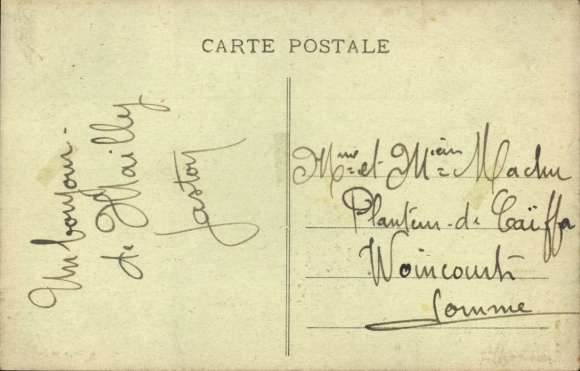 CARTE POSTALE
Un bonjour.
de Mailly
Gaston
Mme et Mr Machu
Planteur de Caïffa
Woincourt
Somme